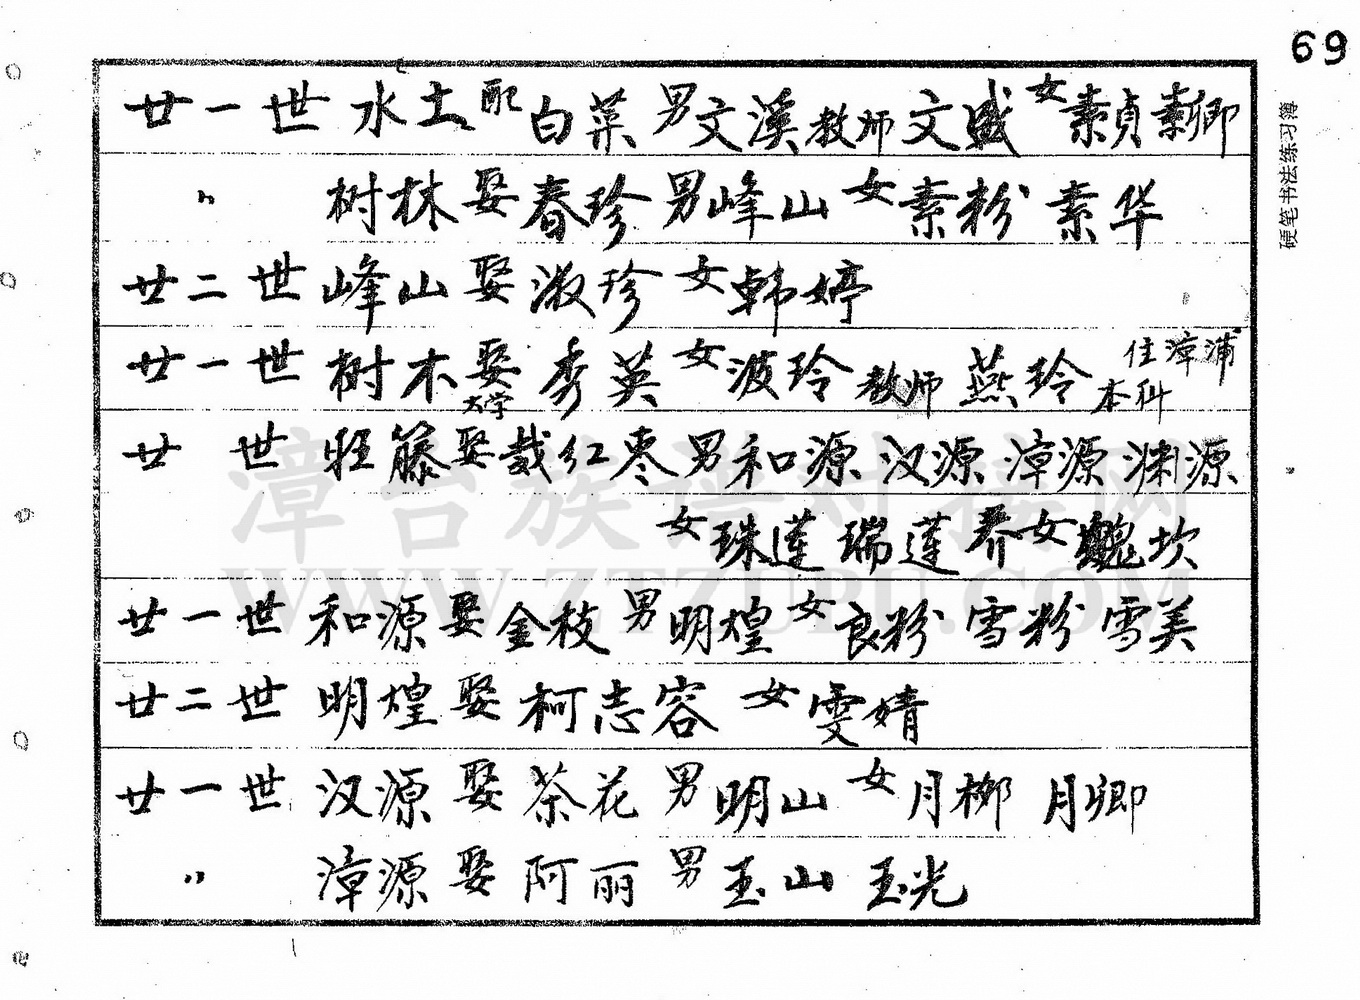 69
硬笔书法练习簿
廿一世 水土 配 白菜 男 文溪 教师 文盛 女 素贞 素卿
〃 树林 娶 春珍 男 峰山 女 素粉 素华
廿二世 峰山 娶 淑珍 女 韩婷
廿一世 树木 娶 秀英 女 波玲 教师 燕玲 本科 住漳浦
大学
廿世 旺藤 娶 红枣 男 和源 汉源 漳源 渊源
女 珠莲 瑞莲 养女 坎
廿一世 和源 娶 金枝 男 明煌 女 良粉 雪粉 雪美
廿二世 明煌 娶 柯志容 女 雯婧
廿一世 汉源 娶 茶花 男 明山 女 月梛 月卿
〃 漳源 娶 阿丽 男 玉山 玉光
漳台族谱对接网
WWW.ZTZUPU.COM